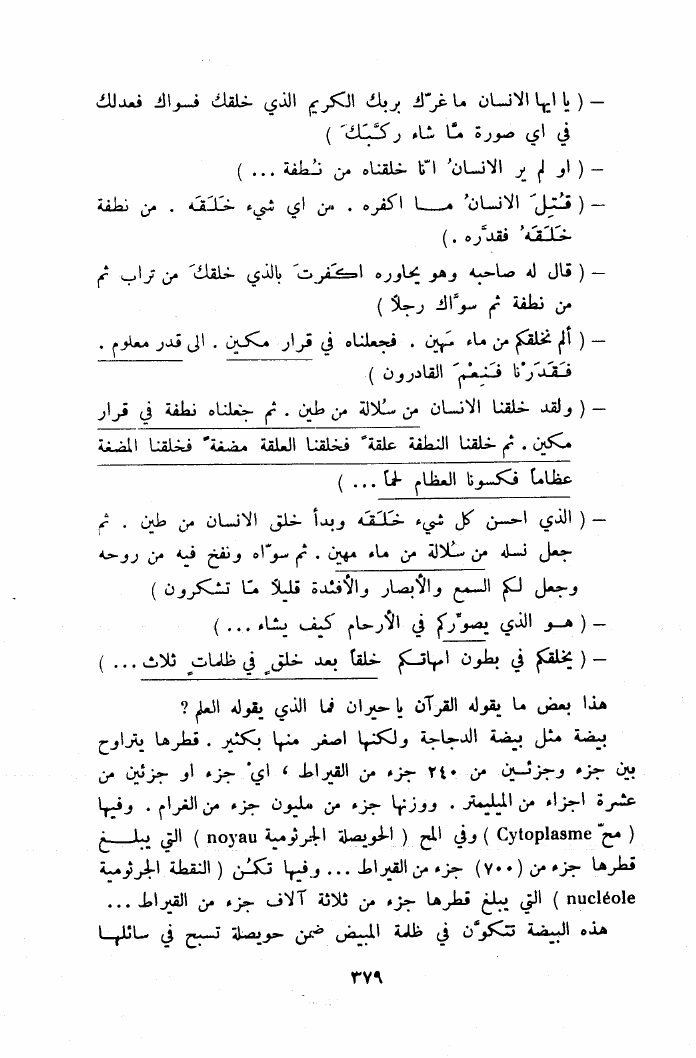 – ( يا ايها الانسان ما غرّك بربك الكريم الذي خلقك فسواك فعدلك
في اي صورة مّا شاء ركَّبَكَ )
– ( او لم ير الانسانُ انّا خلقناه من نُطفة ... )
– ( قُتِلَ الانسانُ مـا اكفره . من اي شيء خَلَقَه . من نطفة
خَلَقَهُ فقدَّره .)
– ( قال له صاحبه وهو يحاوره اكَفرتَ بالذي خلقكَ من تراب ثم
من نطفة ثم سوَّاك رجلاً )
– ( ألم نخلقكم من ماء مَهين . فجعلناه في قرار مكين . الى قدر معلوم .
فَقَدَرْنا فَنِعْمَ القادرون )
– ( ولقد خلقنا الانسان من سُلالة من طين . ثم جعلناه نطفة في قرار
مكين . ثم خلقنا النطفة علقةً فخلقنا العلقة مضغةً فخلقنا المضغة
عظاماً فكسونا العظام لحماً ... )
– ( الذي احسن كل شيء خَلَقَه وبدأ خلق الانسان من طين . ثم
جعل نسله من سُلالة من ماء مهين . ثم سوّاه ونفخ فيه من روحه
وجعل لكم السمع والأبصار والأفئدة قليلاً مّا تشكرون )
– ( هـو الذي يصوّركم في الأرحام كيف يشاء ... )
– ( يخلقكم في بطون امهاتكم خلقاً بعد خلقٍ في ظلماتٍ ثلاث ... )
هذا بعض ما يقوله القرآن يا حيران فما الذي يقوله العلم ؟
بيضة مثل بيضة الدجاجة ولكنها اصغر منها بكثير . قطرها يتراوح
بين جزء وجزئـين من ٢٤٠ جزء من القيراط ، ايْ جزء او جزئين من
عشرة اجزاء من الميليمتر . ووزنها جزء من مليون جزء من الغرام . وفيها
( محّ Cytoplasme ) وفي المح ( الحويصلة الجرثومية noyau ) التي يبلـغ
قطرها جزء من (٧٠٠) جزء من القيراط ... وفيها تكمُن ( النقطة الجرثومية
nucléole ) التي يبلغ قطرها جزء من ثلاثة آلاف جزء من القيراط ...
هذه البيضة تتكوَّن في ظلمة المبيض ضمن حويصلة تسبح في سائلهـا
٣٧٩